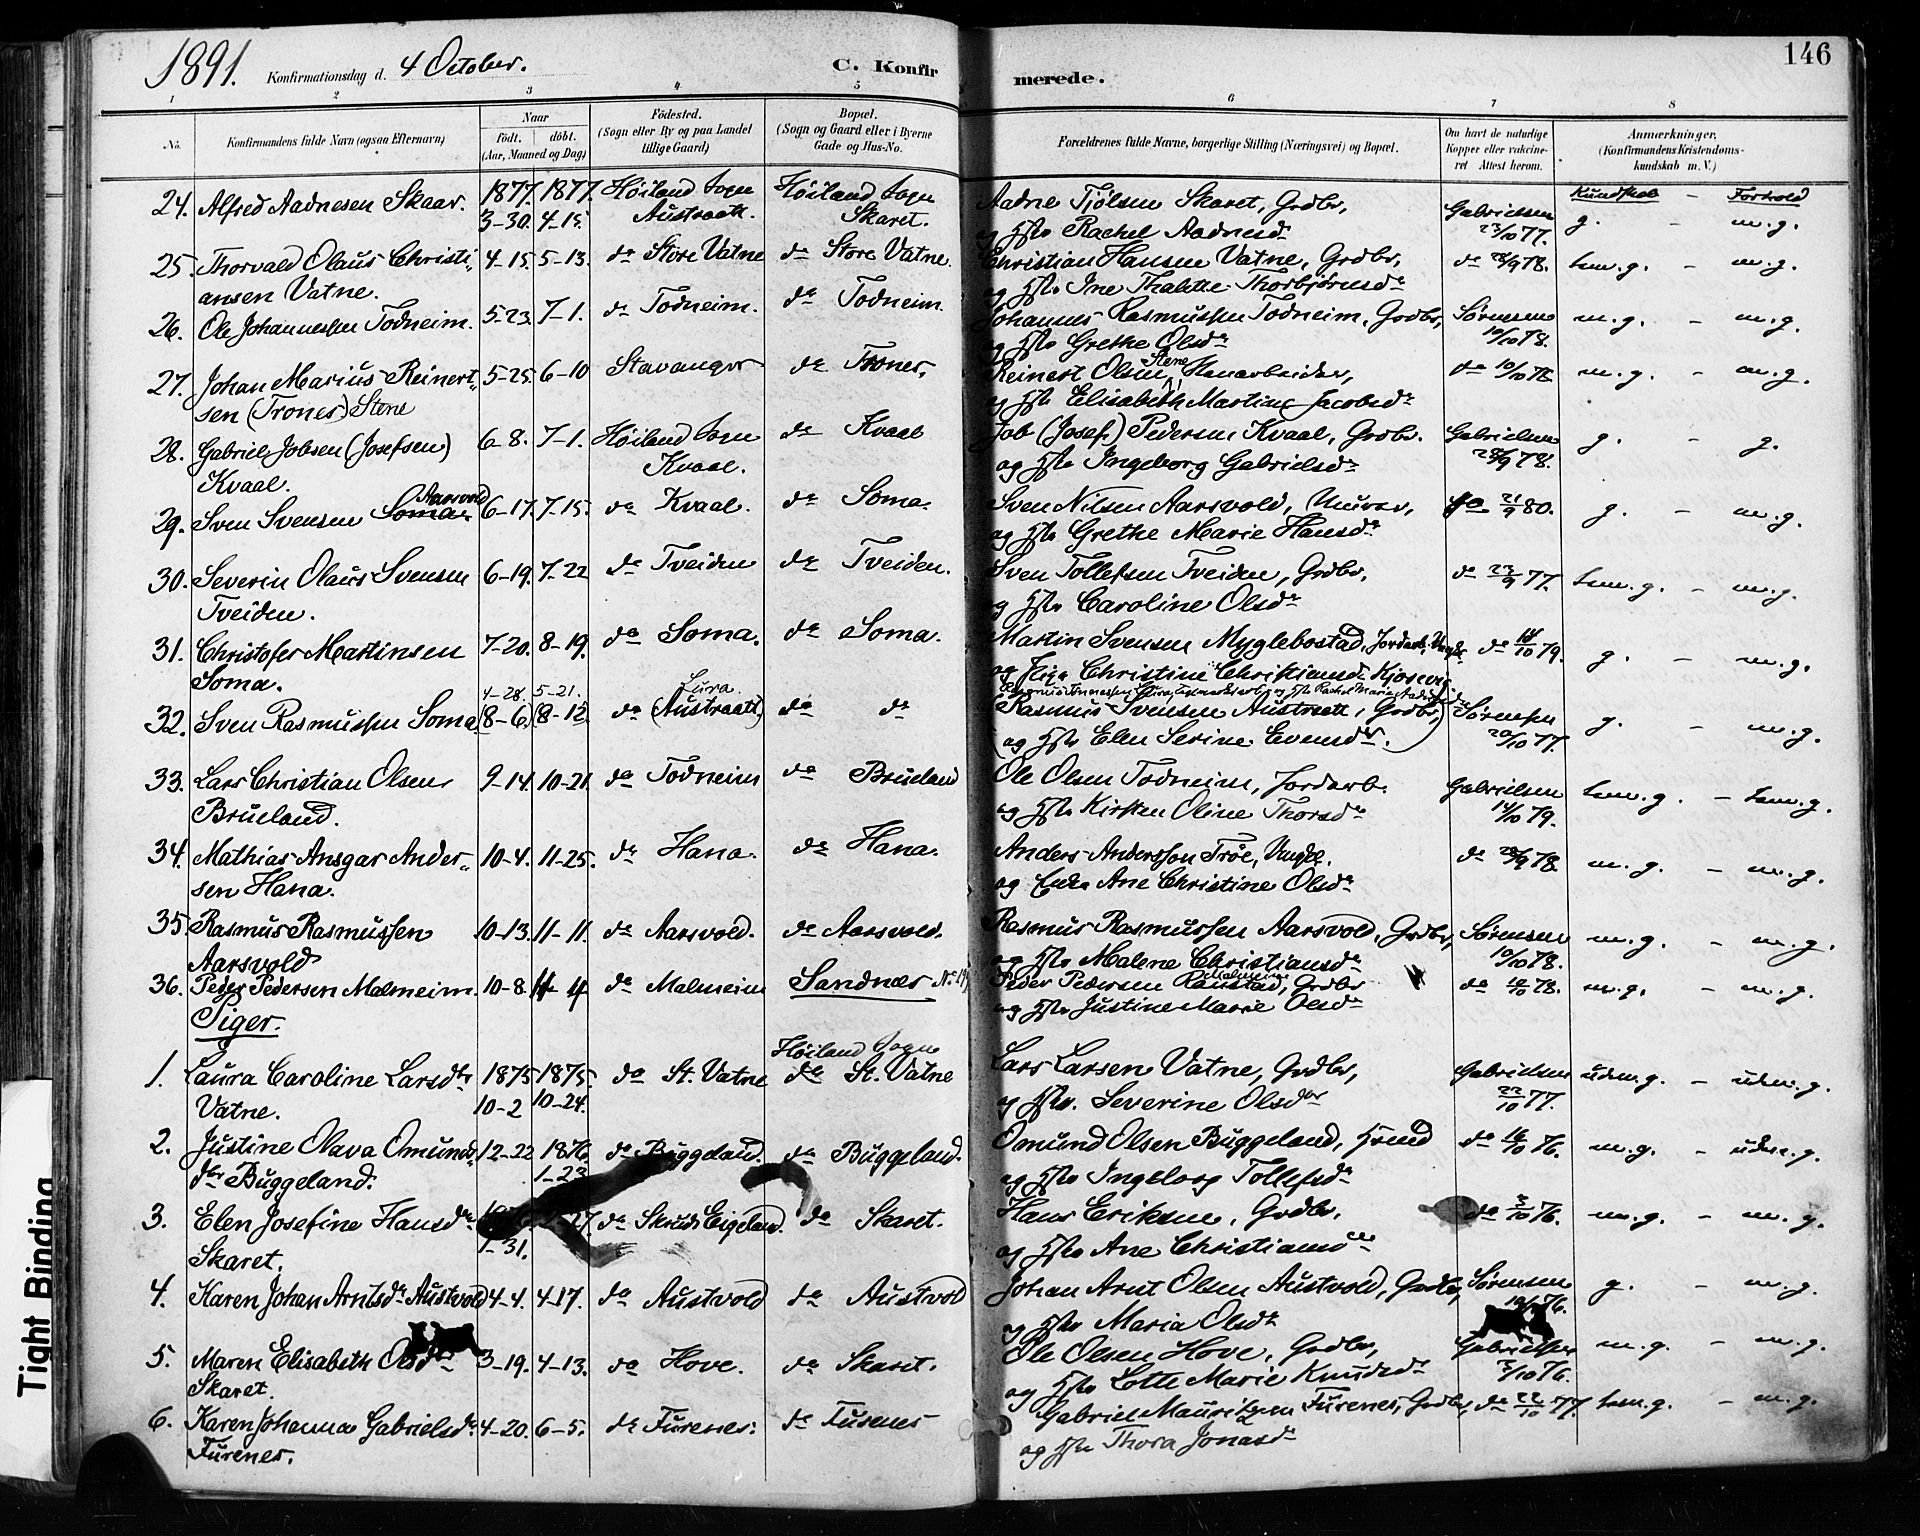 1891. Konfirmationsdag d. 4 October. C. Konfirmerede. 146
1 2 3 4 5 6 7 8
No. Konfirmandens fulde Navn (ogsaa Efternavn) Naar født. døbt. (Aar, Maaned og Dag) Fødested. (Sogn eller By og paa Landet tillige Gaard) Bopæl. (Sogn og Gaard eller i Byerne Gade og Hus-No. Forældrenes fulde Navne, borgerlige Stilling (Næringsvei) og Bopæl. Om havt de naturlige Kopper eller vakcineret Attest herom. Anmærkninger, (Konfirmandens Kristendomskundskab m. V.)
Kundskab - Forhold
24. Alfred Aadnesen Skaar. 1877. 1877. Høiland Sogn Høiland Sogn Aadne Tjølsen Skaret, Grdbr, Gabrielsen g. - m.g.
3-30. 4-15. Austraatt. Skaret. og Hstr Rachel Aadnesdr 23/10 77.
25. Thorvald Olaus Christi- 4-15. 5-13. do Store Vatne do Store Vatne. Christian Hansen Vatne, Grdbr, do /9 78. tem.g. - m.g.
ansen Vatne. og Hstr Ine Thalette Thorbjørnsdr
26. Ole Johannessen Todneim. 5-23. 7-1. do Todneim. do Todneim. Johannes Rasmussen Todneim, Grdbr, Sørensen m.g. - m.g.
og Hstr Grethe Olsdr 10/10 78.
27. Johan Marius Reinert- 5-25. 6-10 Stavanger do Trones. Reinert Olsen Stene, Stenarbeider, do 10/10 78. m.g. - m.g.
sen (Trones) Stene og Hstr Elisabeth Martine Jacobsdr
28. Gabriel Jobsen (Josefsen) 6-8. 7-1. Høiland Sogn do Kvaal Job (Josef) Pedersen Kvaal, Grdbr. Gabrielsen g. - g.
Kvaal. Kvaal. og Hstr Ingeborg Gabrielsdr /9 78.
29. Sven Svensen Soma Aarsvold 6-17. 7-15. do Kvaal. do Soma. Sven Nilsen Aarsvold, Murer, do 21/9 80. g. - m.g.
og Hstr Grethe Marie Hansdr
30. Severin Olaus Svensen 6-19. 7-22 do Tveiden do Tveiden. Sven Tollefsen Tveiden, Grdbr, do 23/9 77. tem.g. - m.g.
Tveiden. og Hstr Caroline Olsdr
31. Christofer Martinsen 7-20. 8-19. do Soma. do Soma. Martin Svensen Myglebostad, Jordarb. Ungk. do /10 79. g. - m.g.
Soma. og Pige Christine Christiansd. Kjosevig
4-28. 5-21. Lura.
32. Sven Rasmussen Soma (8-6.) (8-12.) do (Austraatt.) do do (Rasmus Svensen Austraatt, Grdbr, Sørensen g. - m.g.
og Hstr Elen Serine Evensdr.) 20/10 77.
33. Lars Christian Olsen 9-14. 10-21. do Todneim do Brueland Ole Olsen Todneim, Jordarb. Gabrielsen tem.g. - tem.g.
Brueland. og Hstr Kirsten Oline Thorsdr 14/10 79.
34. Mathias Ansgar Ander- 10-4. 11-25. do Hana. do Hana. Anders Andersson Trøe, Ungk. do /9 78. m.g. - m.g.
sen Hana. og Enke Ane Christine Olsdr
35. Rasmus Rasmussen 10-13. 11-11. do Aarsvold. do Aarsvold. Rasmus Rasmussen Aarsvold, Grdbr, Sørensen m.g. - m.g.
Aarsvold og Hstr Malene Christiansdr 10/10 78.
36. Peder Pedersen Malmeim. 10-8. 11-4 do Malmeim Sandnæs Peder Pedersen Malmeim, Grdbr do /10 78. m.g. - m.g.
Piger. og Hstr Justine Marie Olsdr
Høiland Sogn
1. Laura Caroline Larsdtr 1875 1875. do St. Vatne do St. Vatne Lars Larsen Vatne, Grdbr, Gabrielsen udm.g. - udm.g.
Vatne. 10-2 10-24. og Hstr. Severine Olsdtr 22/10 77.
2. Justine Olava Omunds- 12-22 1876 do Buggeland. do Buggeland. Omund Olsen Buggeland, do /10 76. m.g. - udm.g.
dtr Buggeland. 1-23 og Hstr Ingeborg Tollefsdr
3. Elen Josefine Hansdr -27. do Skruds Eigeland. do Skaret. Hans Eriksen, Grdbr, do 3/10 76. m.g. - m.g.
Skaret. 1-31. og Hstr Ane Christiansdtr
4. Karen Johan Arntsdr Austvold 4-4. 4-17. do Austvold do Austvold Johan Arnt Olsen Austvold, Grdbr, Sørensen g. - m.g.
og Hstr Maria Olsdr 76.
5. Maren Elisabeth Olsdr 3-19. 4-13. do Hove. do Skaret. Ole Olsen Hove, Grdbr, Gabrielsen m.g. - m.g.
Skaret. og Hstr Lotte Marie Knudsdr /10 76.
6. Karen Johanna Gabrielsdr 4-20. 6-5. do Furenes. do Furenes Gabriel Mauritzen Furenes, Grdbr, do 22/10 77. tem.g. - m.g.
Furenes. og Hstr Thora Jonasdr
Tight Binding